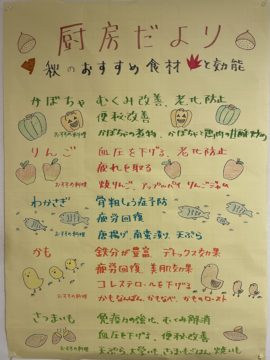 厨房だより
秋のおすすめ食材と効能
かぼちゃ むくみ改善、老化防止
便秘改善
おすすめ料理 かぼちゃの煮物、かぼちゃと鶏肉の甘酢炒め
りんご 血圧を下げる、老化防止
疲れを取る
おすすめ料理 焼りんご、アップルパイ、りんごジャム
わかさぎ 骨粗しょう症予防
疲労回復
おすすめ料理 唐揚げ、南蛮漬け、天ぷら
かも 鉄分が豊富 デトックス効果
疲労回復、美肌効果
コレステロールを下げる
おすすめ料理 かもなんばん、かもなべ、かものロースト
さつまいも 免疫力の強化、むくみ解消
血圧を下げる、便秘改善
おすすめ料理 天ぷら、大学いも、さつまいもごはん、焼いも